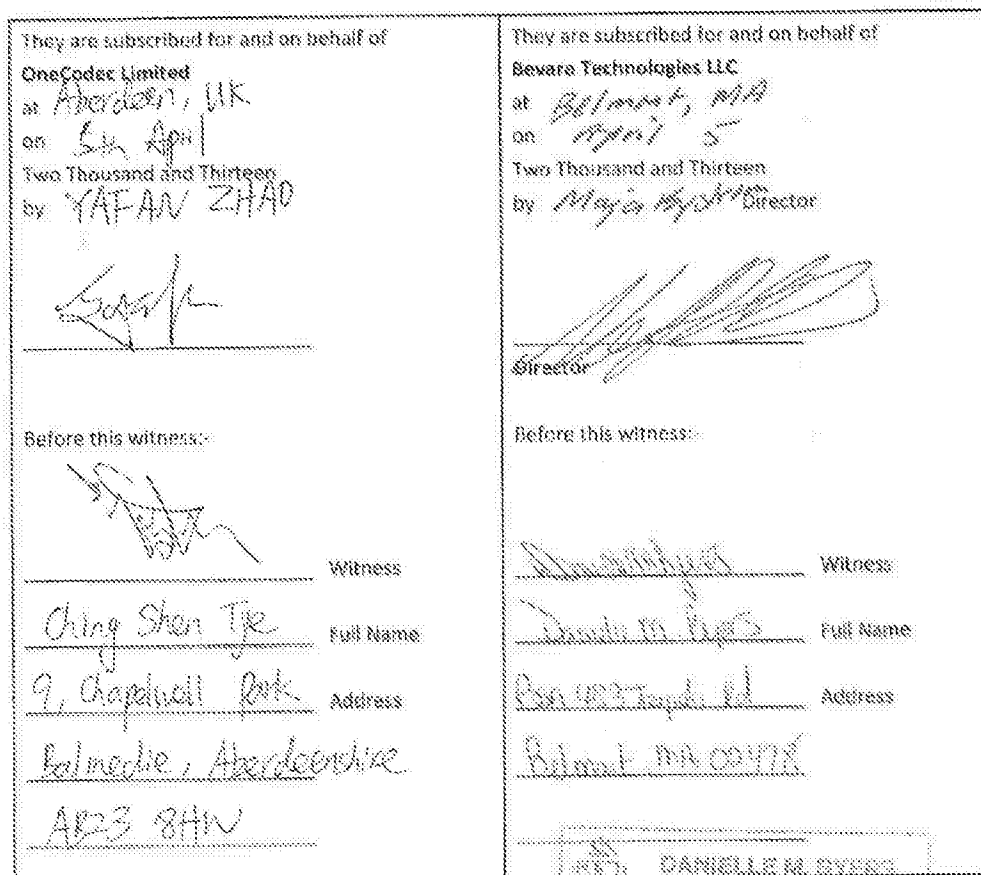 They are subscribed for and on behalf of
OneCodec Limited
at Aberdeen, UK
on 5th April
Two Thousand and Thirteen
by YAFAN ZHAO
Before this witness:-
Witness
Ching Shen Tje Full Name
9, Chapelwell Park Address
Balmedie, Aberdeenshire
AB23 8HW
They are subscribed for and on behalf of
Bevara Technologies LLC
at Belmont, MA
on April 5
Two Thousand and Thirteen
by Director
Director
Before this witness:-
Witness
Full Name
Address
Belmont MA
DANIELLE M. BYERS